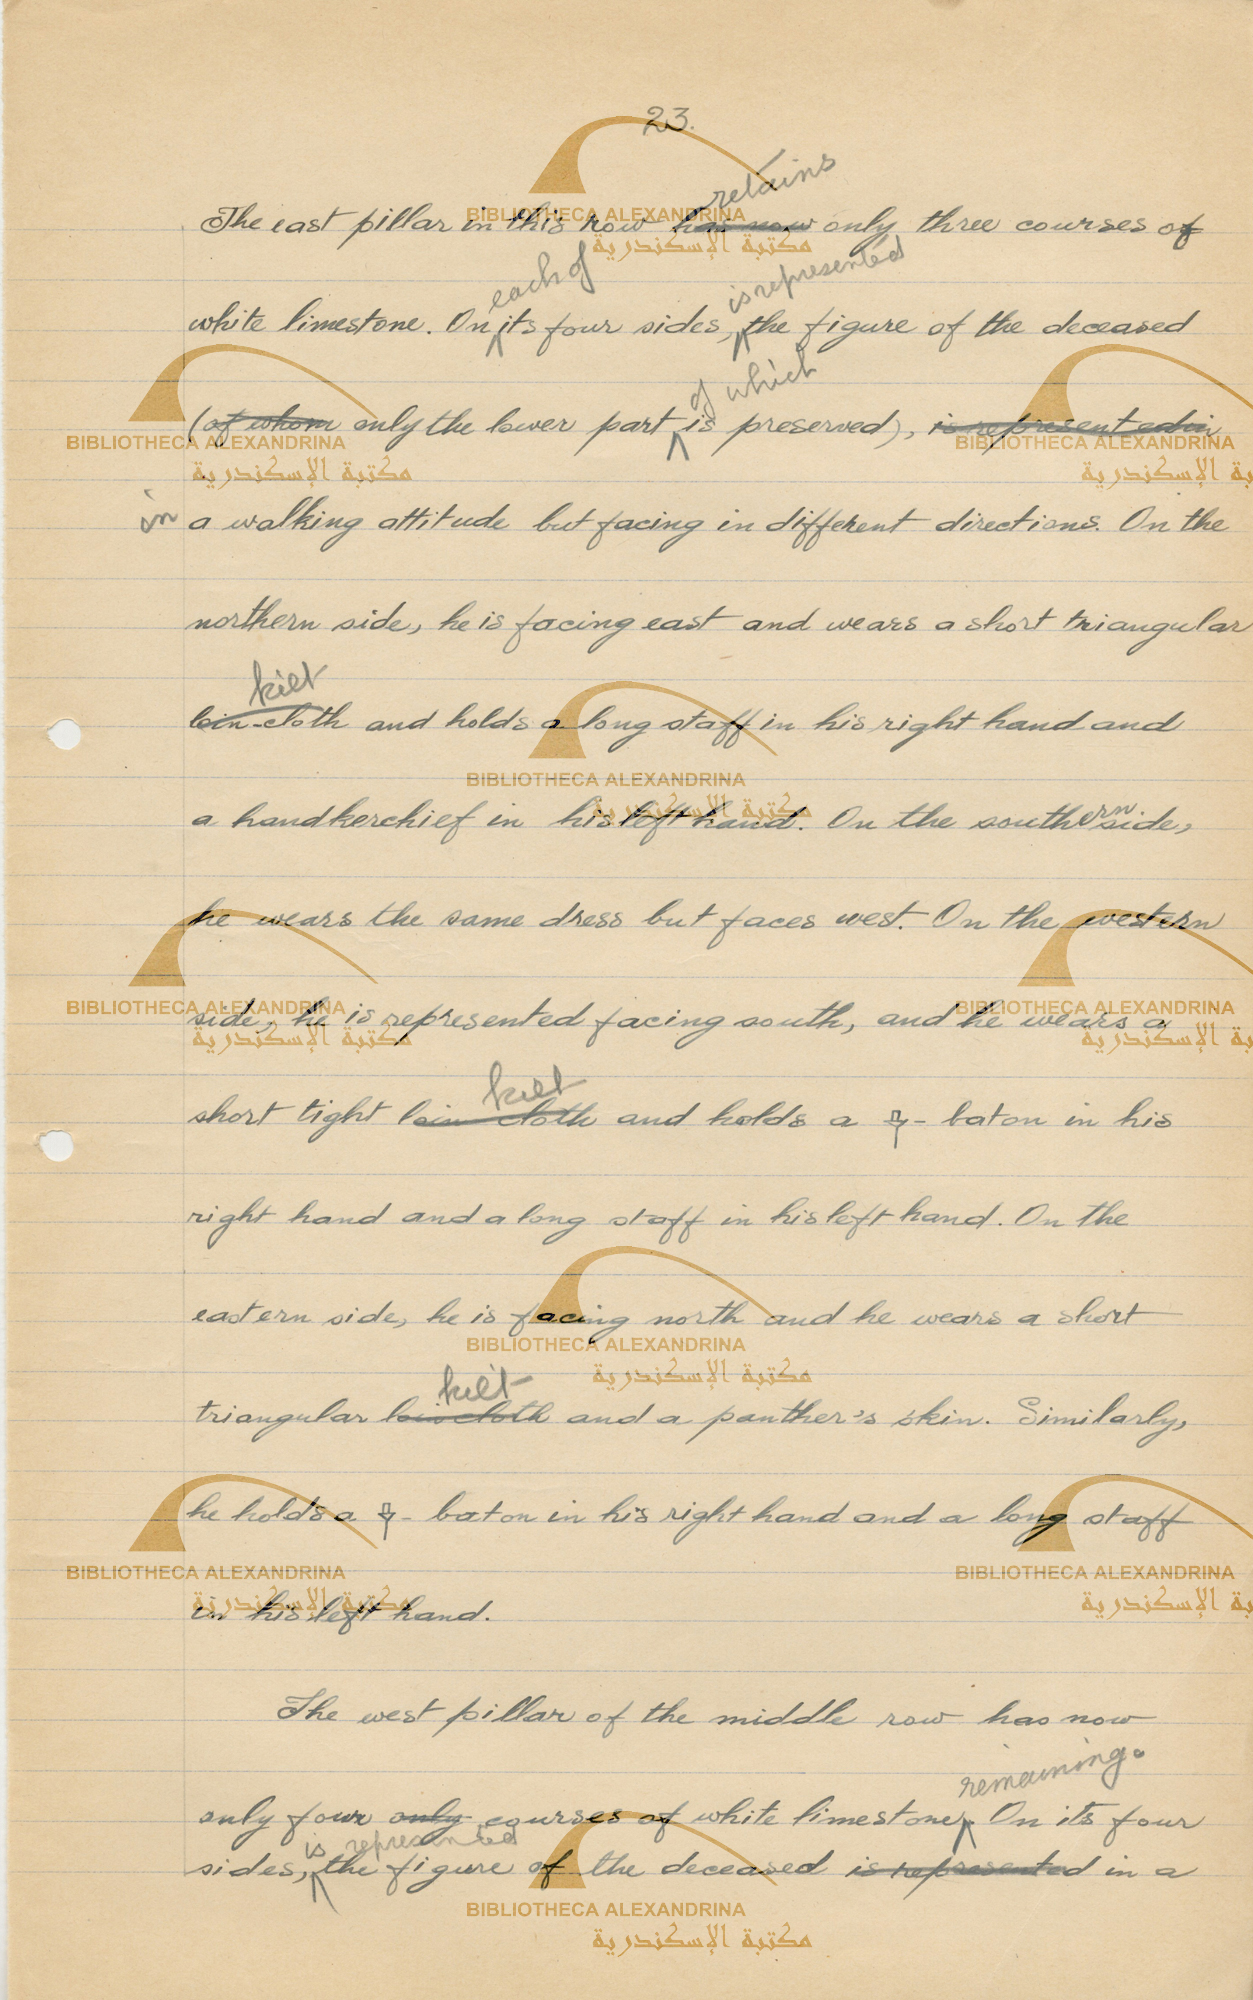 23.
retains
The east pillar in this row has now only three courses of
each of is represented
white limestone. On its four sides, the figure of the deceased
of which
(of whom only the lower part is preserved), is represented in
in a walking attitude but facing in different directions. On the
northern side, he is facing east and wears a short triangular
kilt
loin-cloth and holds a long staff in his right hand and
a handkerchief in his left hand. On the southern side,
he wears the same dress but faces west. On the western
side, he is represented facing south, and he wears a
kilt
short tight loin cloth and holds a - baton in his
right hand and a long staff in his left hand. On the
eastern side, he is facing north and he wears a short
kilt
triangular loin cloth and a panther's skin. Similarly,
he holds a - baton in his right hand and a long staff
in his left hand.
The west pillar of the middle row has now
remaining.
only four only courses of white limestone. On its four
is represented
sides, the figure of the deceased is represented in a
BIBLIOTHECA ALEXANDRINA
مكتبة الإسكندرية